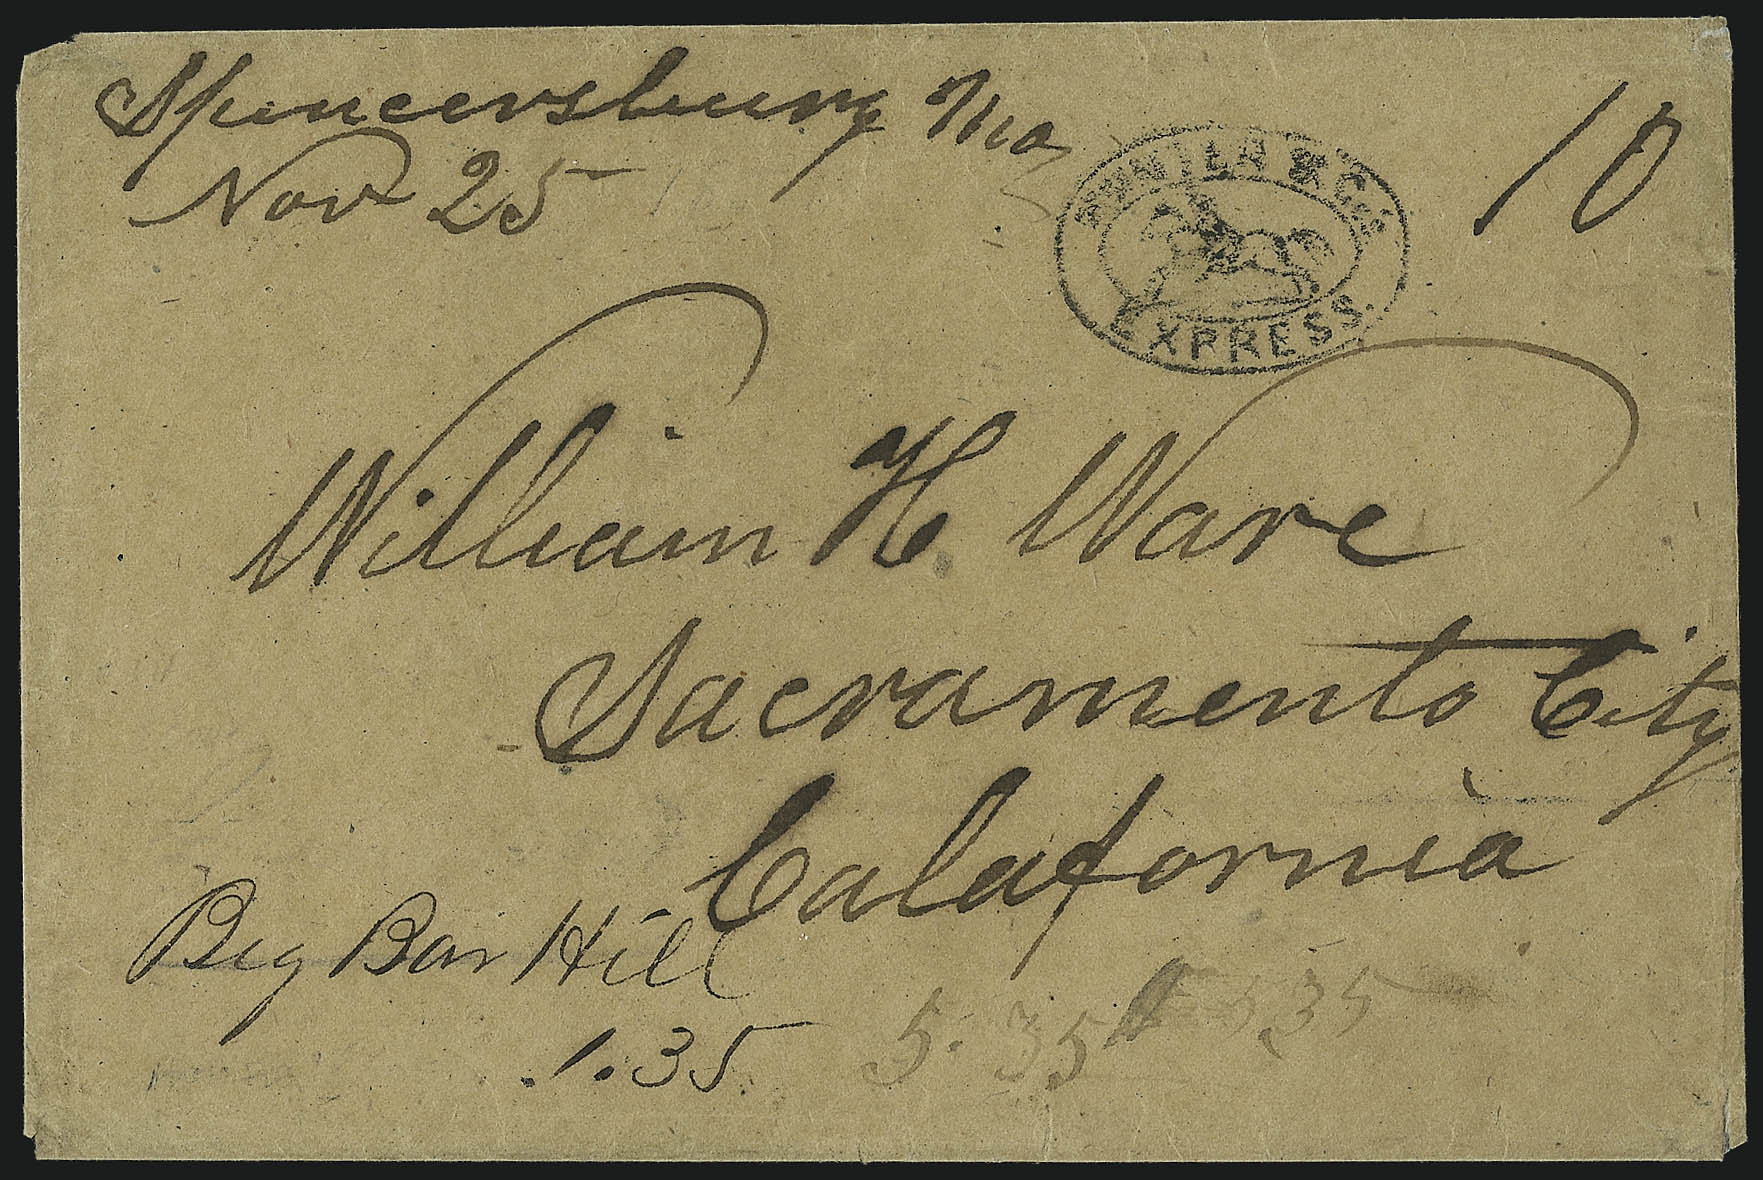 Spencersburg Mo
Nov 25
10
HUNTER & CO'S
EXPRESS.
William H. Ware
Sacramento City
Calafornia
Big Bar Hill
.1.35
5.35
535